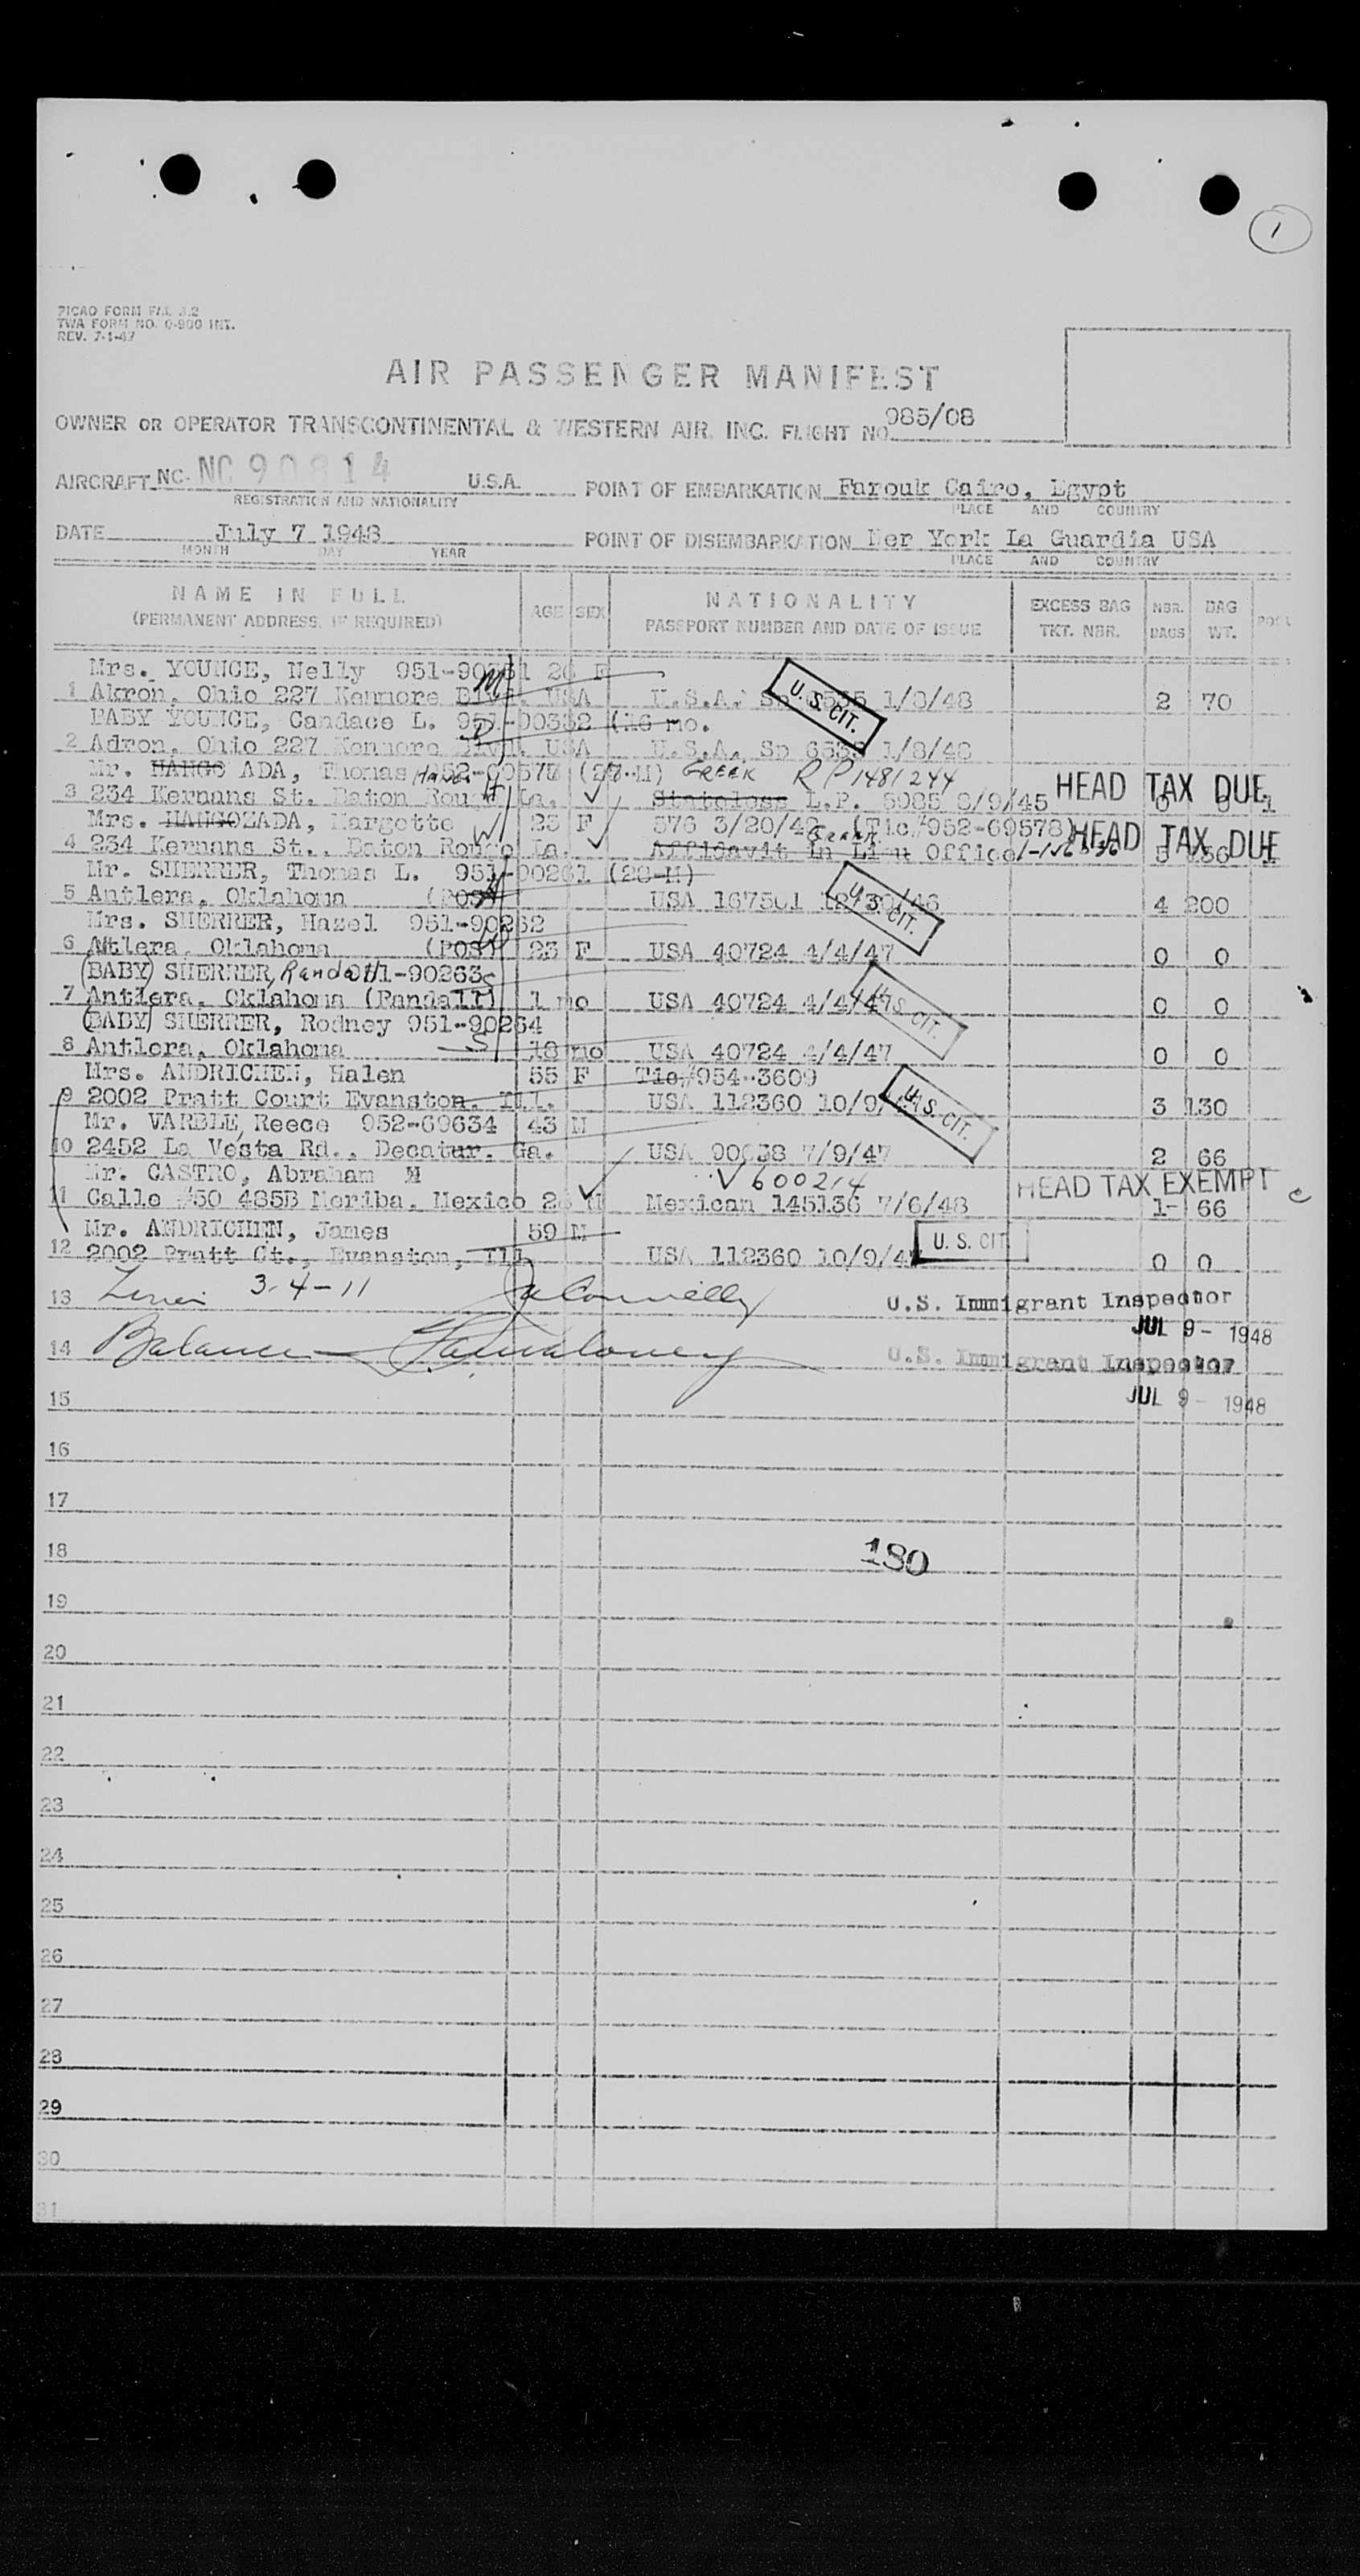 1
PICAO FORM FAL 3.2
TWA FORM NO. O-900 INT.
REV. 7-1-47
AIR PASSENGER MANIFEST
OWNER OR OPERATOR TRANSCONTINENTAL & WESTERN AIR, INC. FLIGHT NO. 985/08
AIRCRAFT NC- NC 90814 U.S.A. POINT OF EMBARKATION Farouk Cairo, Egypt
REGISTRATION AND NATIONALITY PLACE AND COUNTRY
DATE July 7 1948 POINT OF DISEMBARKATION Ner York La Guardia USA
MONTH DAY YEAR PLACE AND COUNTRY
NAME IN FULL AGE SEX NATIONALITY EXCESS BAG NBR. BAG
(PERMANENT ADDRESS, IF REQUIRED) PASSPORT NUMBER AND DATE OF ISSUE TKT. NBR. BAGS WT.
Mrs. YOUNCE, Nelly 26 F
1 Akron, Ohio 227 Kenmore USA U.S.A. 1/8/48 2 70
U.S. CIT.
BABY YOUNCE, Candace L. (16 mo.
2 Adron, Ohio 227 Kenmore USA U.S.A. Sp 1/8/48
Mr. HANGO ADA, Thomas GREEK RP 1481244
3 234 Kernans St. Baton La. Stateless L.P. 5985 8/9/45 HEAD TAX DUE
Mrs. ZADA, Margotte W 23 F 576 3/20/48 (Tic.#952-69578)
4 234 Kernans St., Baton Rouge La. Affidavit In Lieu Office HEAD TAX DUE
Mr. SHERRER, Thomas L. 951-90261 (28-M)
5 Antlers, Oklahoma USA 4 200
U.S. CIT.
Mrs. SHERRER, Hazel 951-90262
6 Oklahoma (POST) 23 F USA 40724 4/4/47 0 0
(BABY) SHERRER, Randall 1-90263
7 Antlers, Oklahoma (Randall) 1 mo USA 40724 4/4/47 0 0
U.S. CIT.
(BABY) SHERRER, Rodney 951-90264
8 Antlers, Oklahoma S 18 mo USA 40724 4/4/47 0 0
Mrs. ANDRICHEN, Halen 55 F Tic#954-3609
9 2002 Pratt Court Evanston, Ill. USA 112360 10/9/ 3 130
U.S. CIT.
Mr. VARBLE, Reece 952-69634 43 M
10 2452 La Vesta Rd., Decatur. Ga. USA 7/9/47 2 66
Mr. CASTRO, Abraham M V600214 HEAD TAX EXEMPT
11 Calle #50 485B Meriba, Mexico Mexican 145136 7/6/48 1- 66
Mr. ANDRICHEN, James 59 M
12 2002 Pratt Ct., Evanston, Ill USA 112360 10/9/47 0 0
U. S. CIT
13 3-4-11 U.S. Immigrant Inspector
JUL 9 - 1948
14 Balance U.S. Immigrant Inspector
JUL 9 - 1948
15
16
17
18 180
19
20
21
22
23
24
25
26
27
28
29
30
31